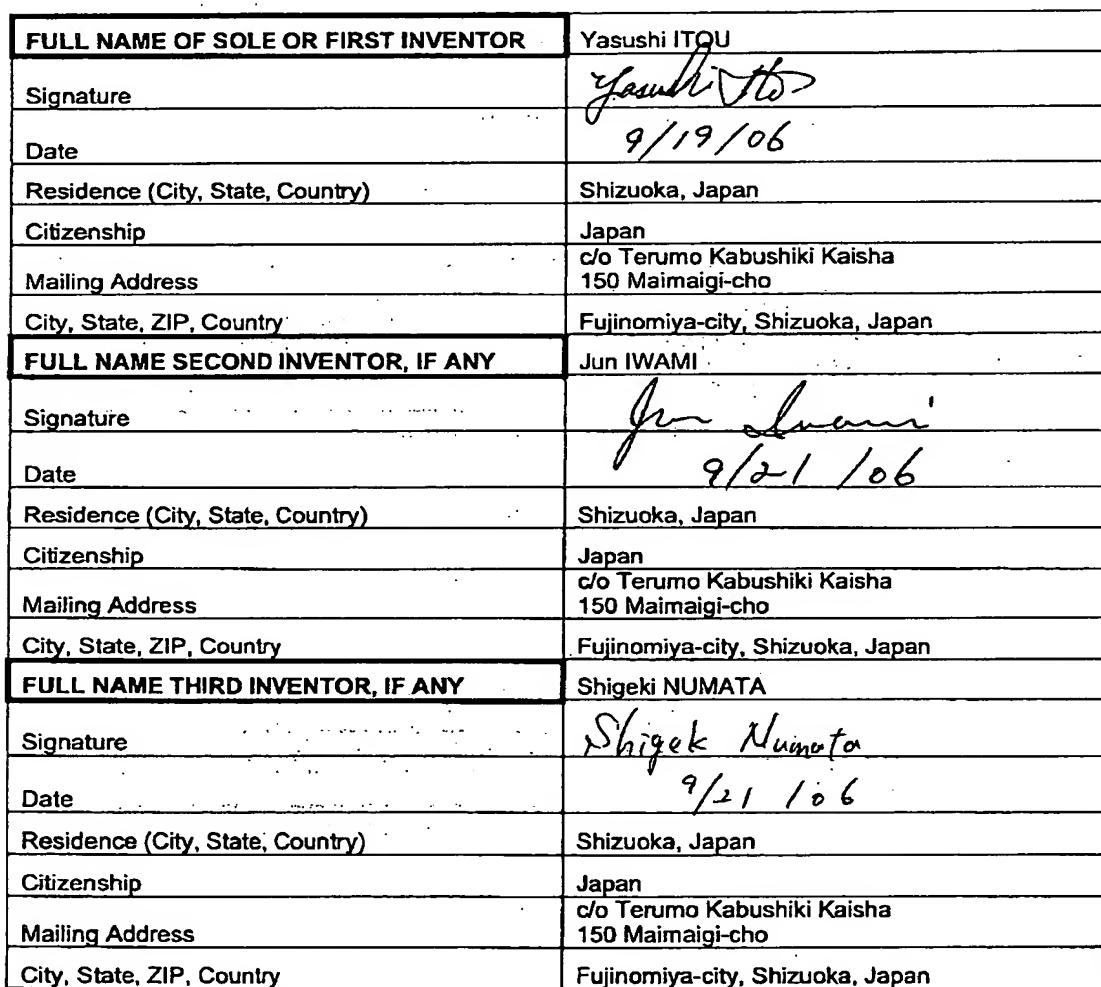 FULL NAME OF SOLE OR FIRST INVENTOR Yasushi ITOU
Signature Yasushi Ito
Date 9/19/06
Residence (City, State, Country) Shizuoka, Japan
Citizenship Japan
c/o Terumo Kabushiki Kaisha
Mailing Address 150 Maimaigi-cho
City, State, ZIP, Country Fujinomiya-city, Shizuoka, Japan
FULL NAME SECOND INVENTOR, IF ANY Jun IWAMI
Signature Jun Iwami
Date 9/21/06
Residence (City, State, Country) Shizuoka, Japan
Citizenship Japan
c/o Terumo Kabushiki Kaisha
Mailing Address 150 Maimaigi-cho
City, State, ZIP, Country Fujinomiya-city, Shizuoka, Japan
FULL NAME THIRD INVENTOR, IF ANY Shigeki NUMATA
Signature Shigek Numata
Date 9/21/06
Residence (City, State, Country) Shizuoka, Japan
Citizenship Japan
c/o Terumo Kabushiki Kaisha
Mailing Address 150 Maimaigi-cho
City, State, ZIP, Country Fujinomiya-city, Shizuoka, Japan